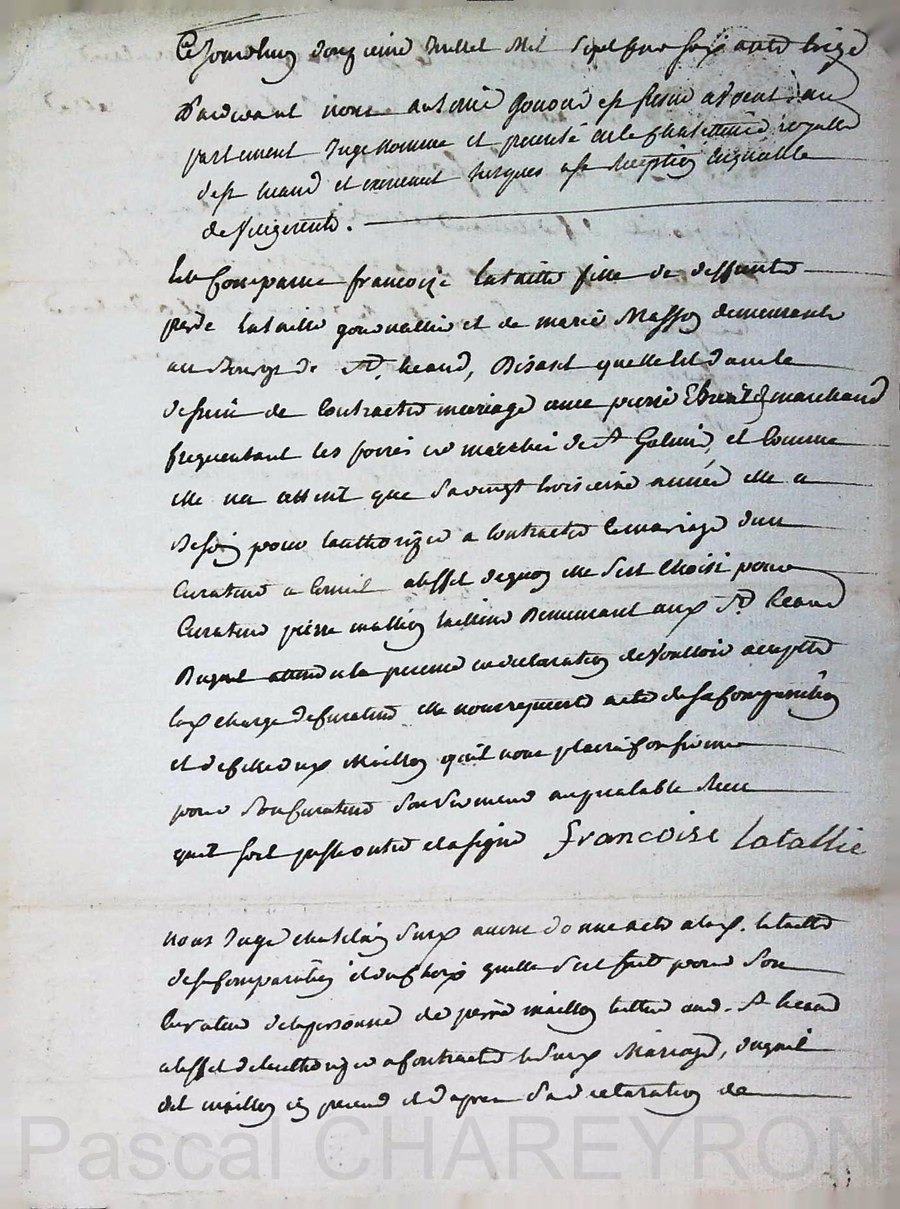 Ce jourdhuy onzieme Juillet Mil Sept Cens soixante treize
Pardevant nous antoine gonon et pierre advocat au
parlement Juge Nomme et presenté de la Chatellenie royalle
de St heand et exercant Jusques a sa reception
de
Est Comparue francoize lataille fille de deffunt
pierre lataille gournallier et de marie Masson demeurante
au Bourg de St. heand, Disant quelle est dans le
dessein de Contracter mariage avec pierre marchand
frequentant les foires et marchés de St Galmier, et Comme
elle na atteint que sa vingt troisieme année elle a
Besoin pour lauthorizer a contracter le mariage dun
Curateur a Conseil a leffet de quoy elle sest choisi pour
Curateur pierre maillon tailleur Demeurant aux St heand
Duquel attendu la presence et declaration de Voulloir accepter
lad charge de Curateur elle nous requiert acte de sa Comparution
et de celle dud Maillon quil nous plaise Confirmer
pour son Curateur son serment au prealable Receu
quil soit passé outre et a signé francoise latallie
nous Juge chatelain Susd avons donné acte a lad. lataille
de sa Comparution et du choix quelle sest fait pour son
Curateur de la personne de pierre maillon tailleur aud. St heand
a leffet de lauthorizer a Contracter le susd Mariage, duquel
dit maillon cy present et dapres sa declaration de
Pascal CHAREYRON